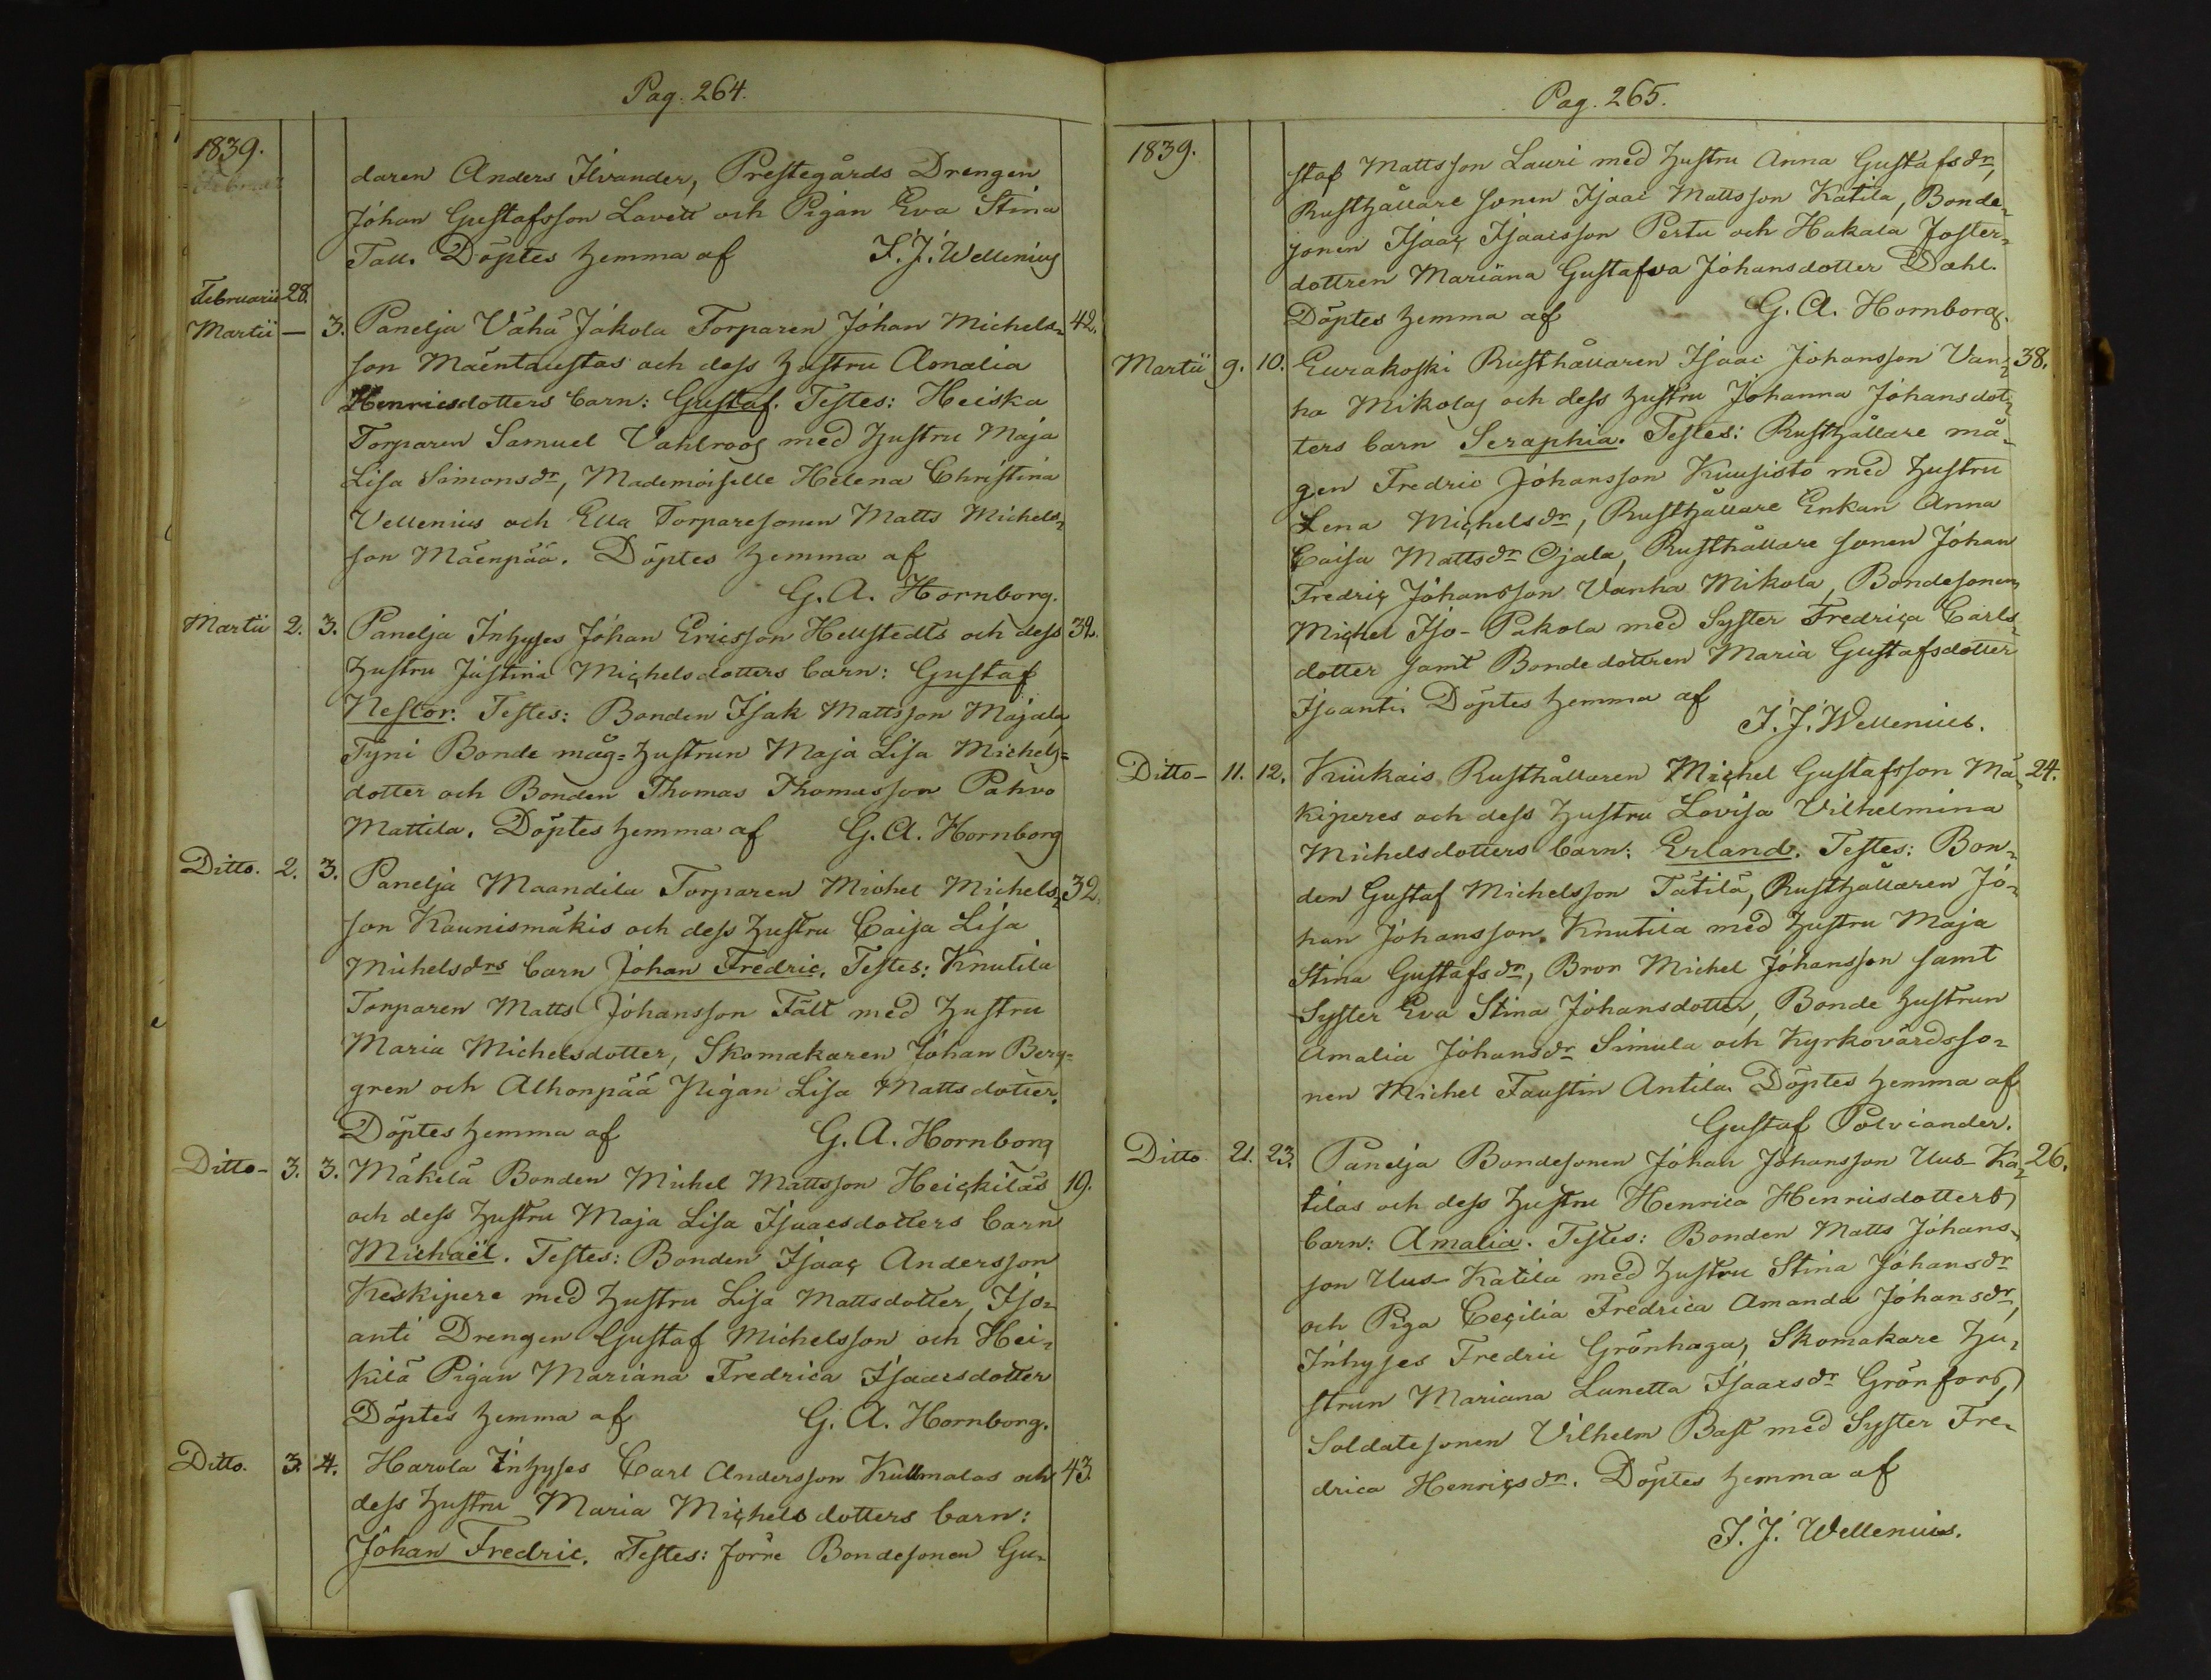 Pag. 264.
1839.
daren Anders Ilvander, Prestegårds Drengen
Johan Gustafsson Lavett och Pigan Eva Stina
Tall. Döptes hemma af I. J. Wellenius
Februarii 28.
Martii — 3. Panelja Vähä Jäkola Torparen Johan Michels- 42.
son Mäentaustas och dess hustru Amalia
Henricsdotters barn: Gustaf. Testes: Heiska
Torparen Samuel Vahlroos med hustru Maja
Lisa Simonsdr, Mademoiselle Helena Christina
Vellenius och Ella Torparesonen Matts Michels-
son Mäenpää. Döptes hemma af
G. A. Hornborg.
Martii 2. 3. Panelja Inhyses Johan Ericsson Hellstedts och dess 32.
hustru Justina Michelsdotters barn: Gustaf
Nestor. Testes: Bonden Isak Mattsson Majala,
Tyni Bonde måg-hustrun Maja Lisa Michels-
dotter och Bonden Thomas Thomasson Pahvo
Mattila. Döptes hemma af G. A. Hornborg
Ditto. 2. 3. Panelja Maandila Torparen Michel Michels- 32.
son Kaunismäkis och dess hustru Caisa Lisa
Michelsdrs barn Johan Fredric. Testes: Knutila
Torparen Matts Johansson Fält med hustru
Maria Michelsdotter, Skomakaren Johan Berg-
gren och Alhonpää Pigan Lisa Mattsdotter.
Döptes hemma af G. A. Hornborg
Ditto- 3. 3. Mäkelä Bonden Michel Mattsson Heickiläs 19.
och dess hustru Maja Lisa Isaacsdotters barn
Michaël. Testes: Bonden Isaac Andersson
Keskipere med hustru Lisa Mattsdotter, Iso-
anti Drengen Gustaf Michelsson och Hei-
kilä Pigan Mariana Fredrica Isaacsdotter
Döptes hemma af G. A. Hornborg.
Ditto. 3. 4. Harola Inhyses Carl Andersson Kullmalas och 43.
dess hustru Maria Michelsdotters barn:
Johan Fredric. Testes: Jorre Bondesonen Gu-
Pag. 265.
1839.
staf Mattsson Lauri med hustru Anna Gustafsdr,
Rusthållare sonen Isaac Mattsson Katila, Bonde-
sonen Isaac Isaacsson Pertu och Hakala Foster-
dottren Mariana Gustafva Johansdotter Dahl.
Döptes hemma af G. A. Hornborg.
Martii 9. 10. Eurakoski Rusthållaren Isaac Johansson Van- 38.
ha Mikolas och dess hustru Johanna Johansdot-
ters barn Seraphia. Testes: Rusthållare må-
gen Fredric Johansson Kuusisto med hustru
Lena Michelsdr, Rusthållare Enkan Anna
Caisa Mattsdr Ojala, Rusthållare sonen Johan
Fredric Johansson Vanha Mikola, Bondesonen
Michel Iso-Pakola med Syster Fredrica Carls-
dotter samt Bondedottren Maria Gustafsdotter
Isoanti. Döptes hemma af
I. J. Wellenius.
Ditto- 11. 12. Kiukais Rusthållaren Michel Gustafsson Mä- 24.
kiperes och dess hustru Lovisa Vilhelmina
Michelsdotters barn: Erland. Testes: Bon-
den Gustaf Michelsson Tätilä, Rusthållaren Jo-
han Johansson Knutila med hustru Maja
Stina Gustafsdr, Bror Michel Johansson samt
Syster Eva Stina Johansdotter, Bonde hustrun
Amalia Johansdr Simula och Kyrkovärdsso-
nen Michel Faustin Antila. Döptes hemma af
Gustaf Polviander.
Ditto. 21. 23. Panelja Bondesonen Johan Johansson Uus-Ka- 26.
tilas och dess hustru Henrica Henricsdotters
barn: Amalia. Testes: Bonden Matts Johans-
son Uus-Katila med hustru Stina Johansdr
och Piga Cecilia Fredrica Amanda Johansdr,
Inhyses Fredric Grönhaga, Skomakare hu-
strun Mariana Lunetta Isaacsdr Grönfors,
Soldatesonen Vilhelm Bast med Syster Fre-
drica Henricsdr. Döptes hemma af
I. J. Wellenius.